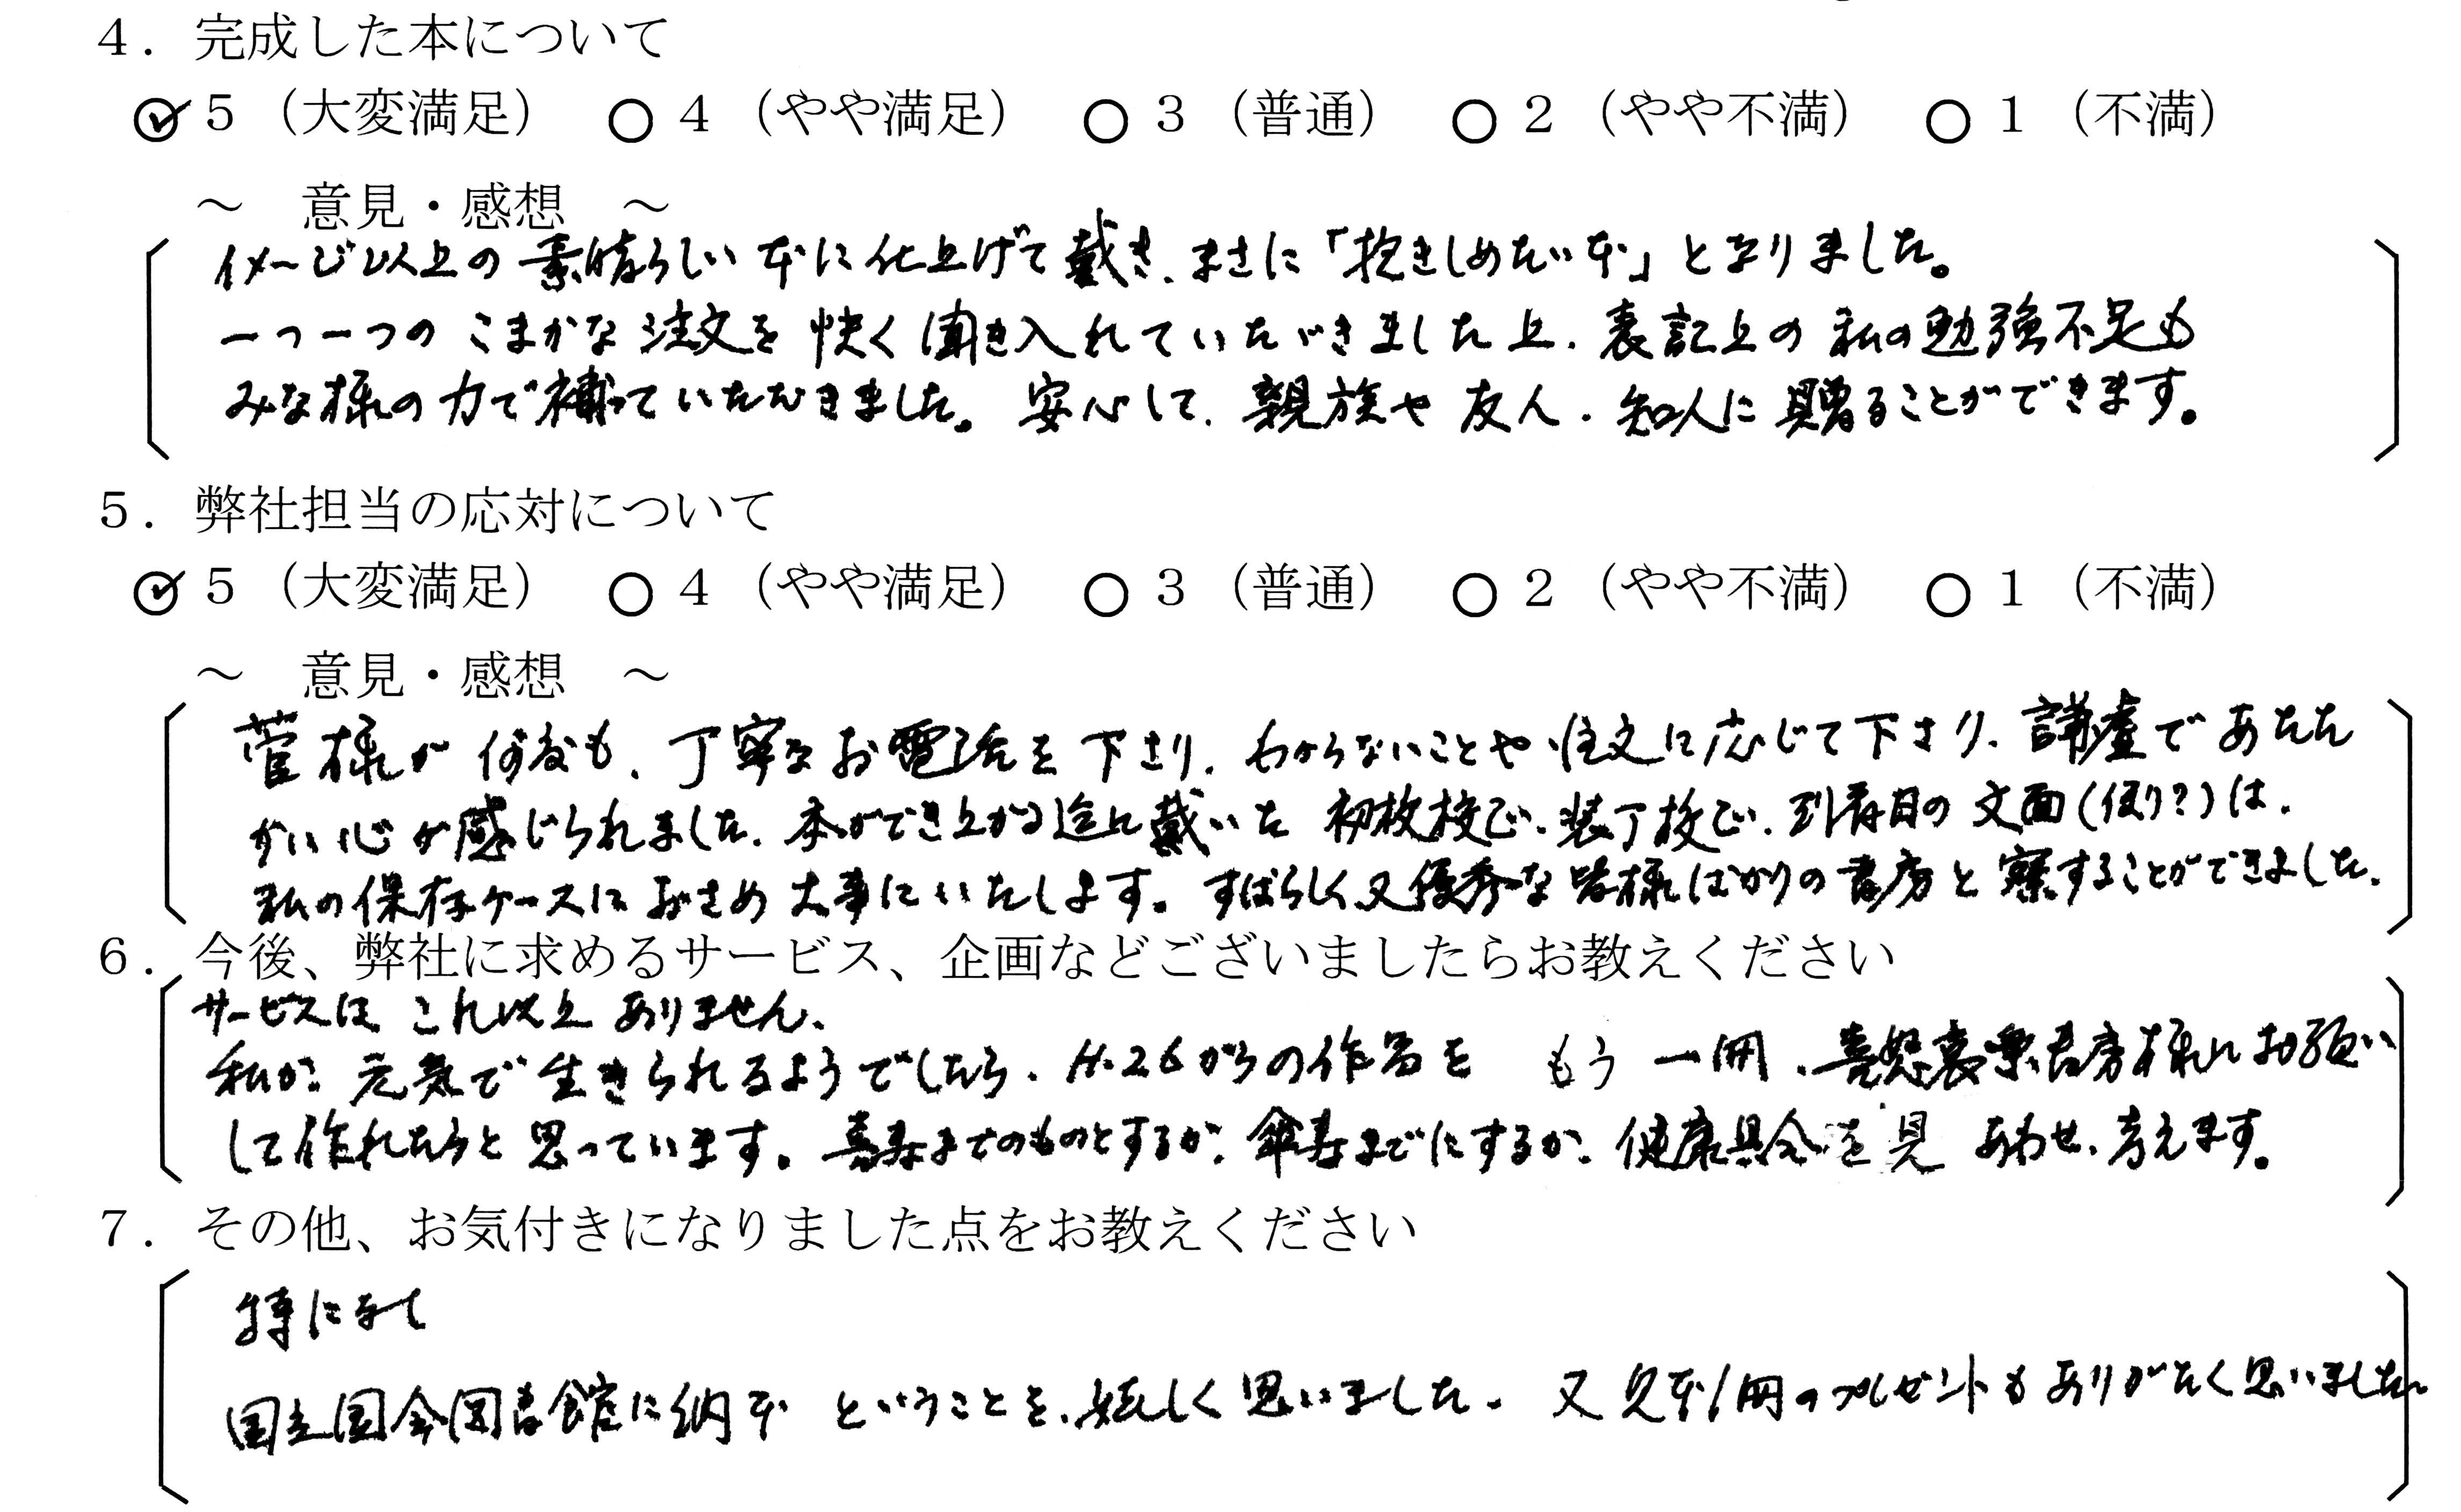 4．完成した本について
5（大変満足） 4（やや満足） 3（普通） 2（やや不満） 1（不満）
～ 意見・感想 ～
イメージ以上の素晴らしい本に仕上げて戴き、まさに「抱きしめたい本」となりました。
一つ一つのこまかな注文を快く聞き入れていただきました上、表記上の私の勉強不足も
みな様の力で補っていただきました。安心して、親族や友人、知人に贈ることができます。
5．弊社担当の応対について
5（大変満足） 4（やや満足） 3（普通） 2（やや不満） 1（不満）
～ 意見・感想 ～
菅様が何度も、丁寧なお電話を下さり、わからないことや注文に応じて下さり、謙虚であたた
かい心が感じられました。本ができ上がる迄に戴いた初校校正、装丁校正、の文面（便り?）は、
私の保存ケースにおさめ大事にいたします。すばらしく又優秀な皆様ばかりの書房と察することができました。
6．今後、弊社に求めるサービス、企画などございましたらお教えください
サービスはこれ以上ありません。
私が元気で生きられるようでしたら、H.26からの作品を もう一冊、喜怒哀楽書房様にお願い
して作れたらと思っています。喜寿までのものとするか、傘寿までにするか、健康具合を見 あわせ、考えます。
7．その他、お気付きになりました点をお教えください
特になし
国立国会図書館に納本ということを、嬉しく思いました。又見本1冊のプレゼントもありがたく思いました。